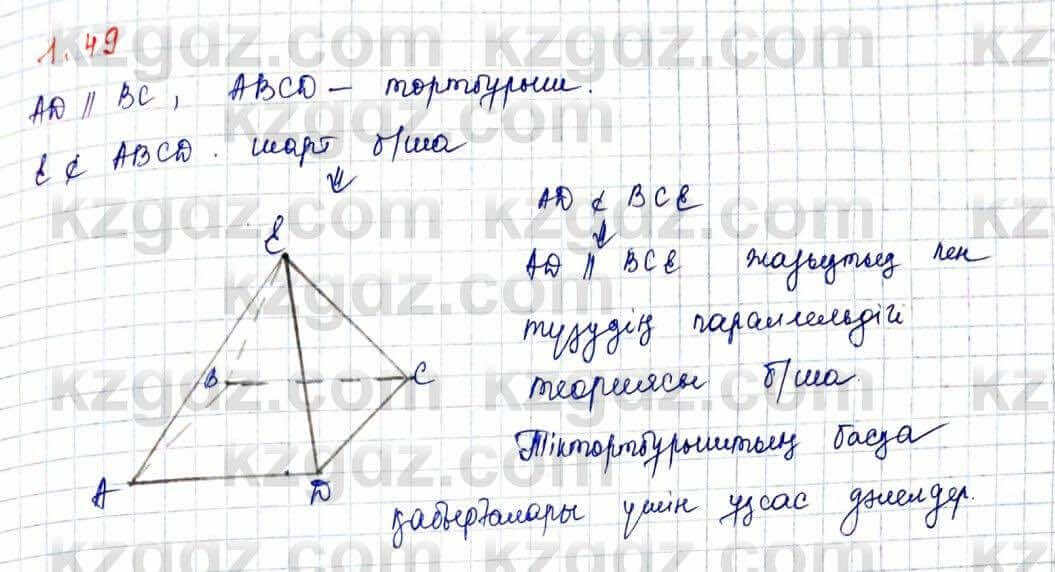 1.49
AD ∥ BC, ABCD – тортбурыш.
E ∉ ABCD. шарт б/ша
⇓
AD ⊄ BCE
⇓
AD ∥ BCE жазықтық пен
түзудің параллельдігі
теориясы б/ша.
Тіктортбұрыштың басқа
қабырғалары үшін ұқсас дәлелдер.
E
B
C
A
D
kzgdz.com